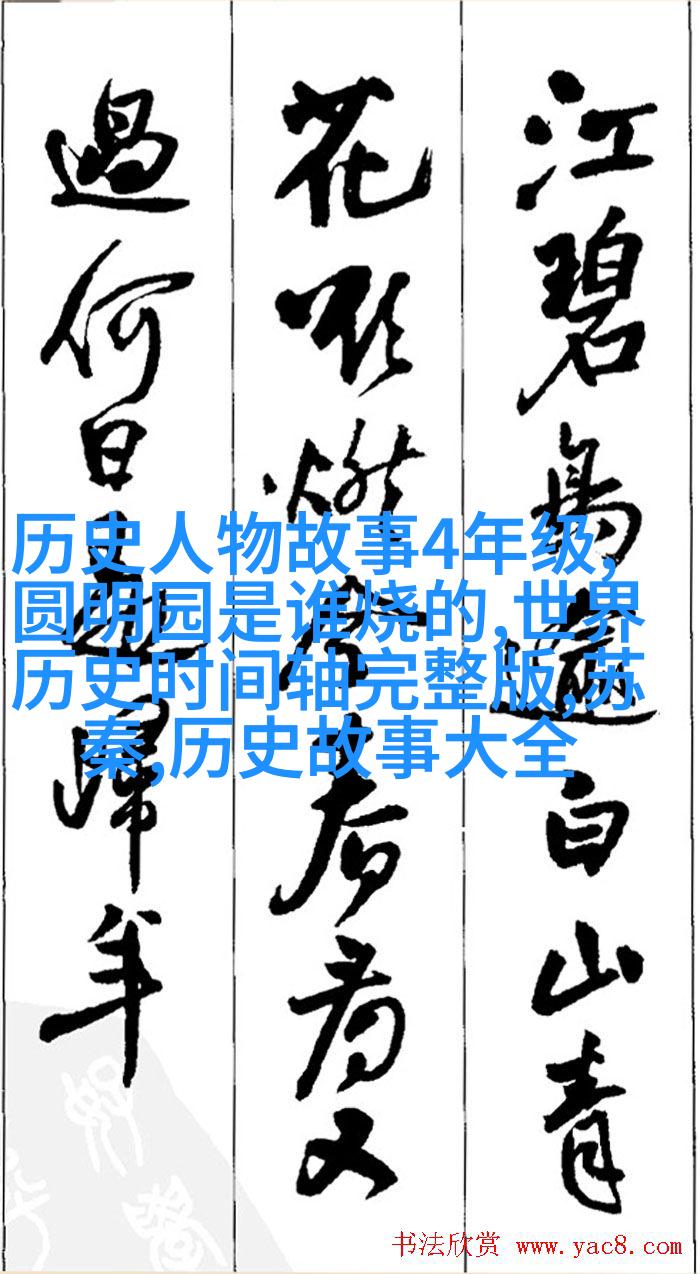 江碧鳥逾白山青
花欲燃今春看又
過何日是歸年
历史人物故事4年级,
圆明园是谁烧的,世界
历史时间轴完整版,苏
秦,历史故事大全
书法欣赏 www.yac8.com